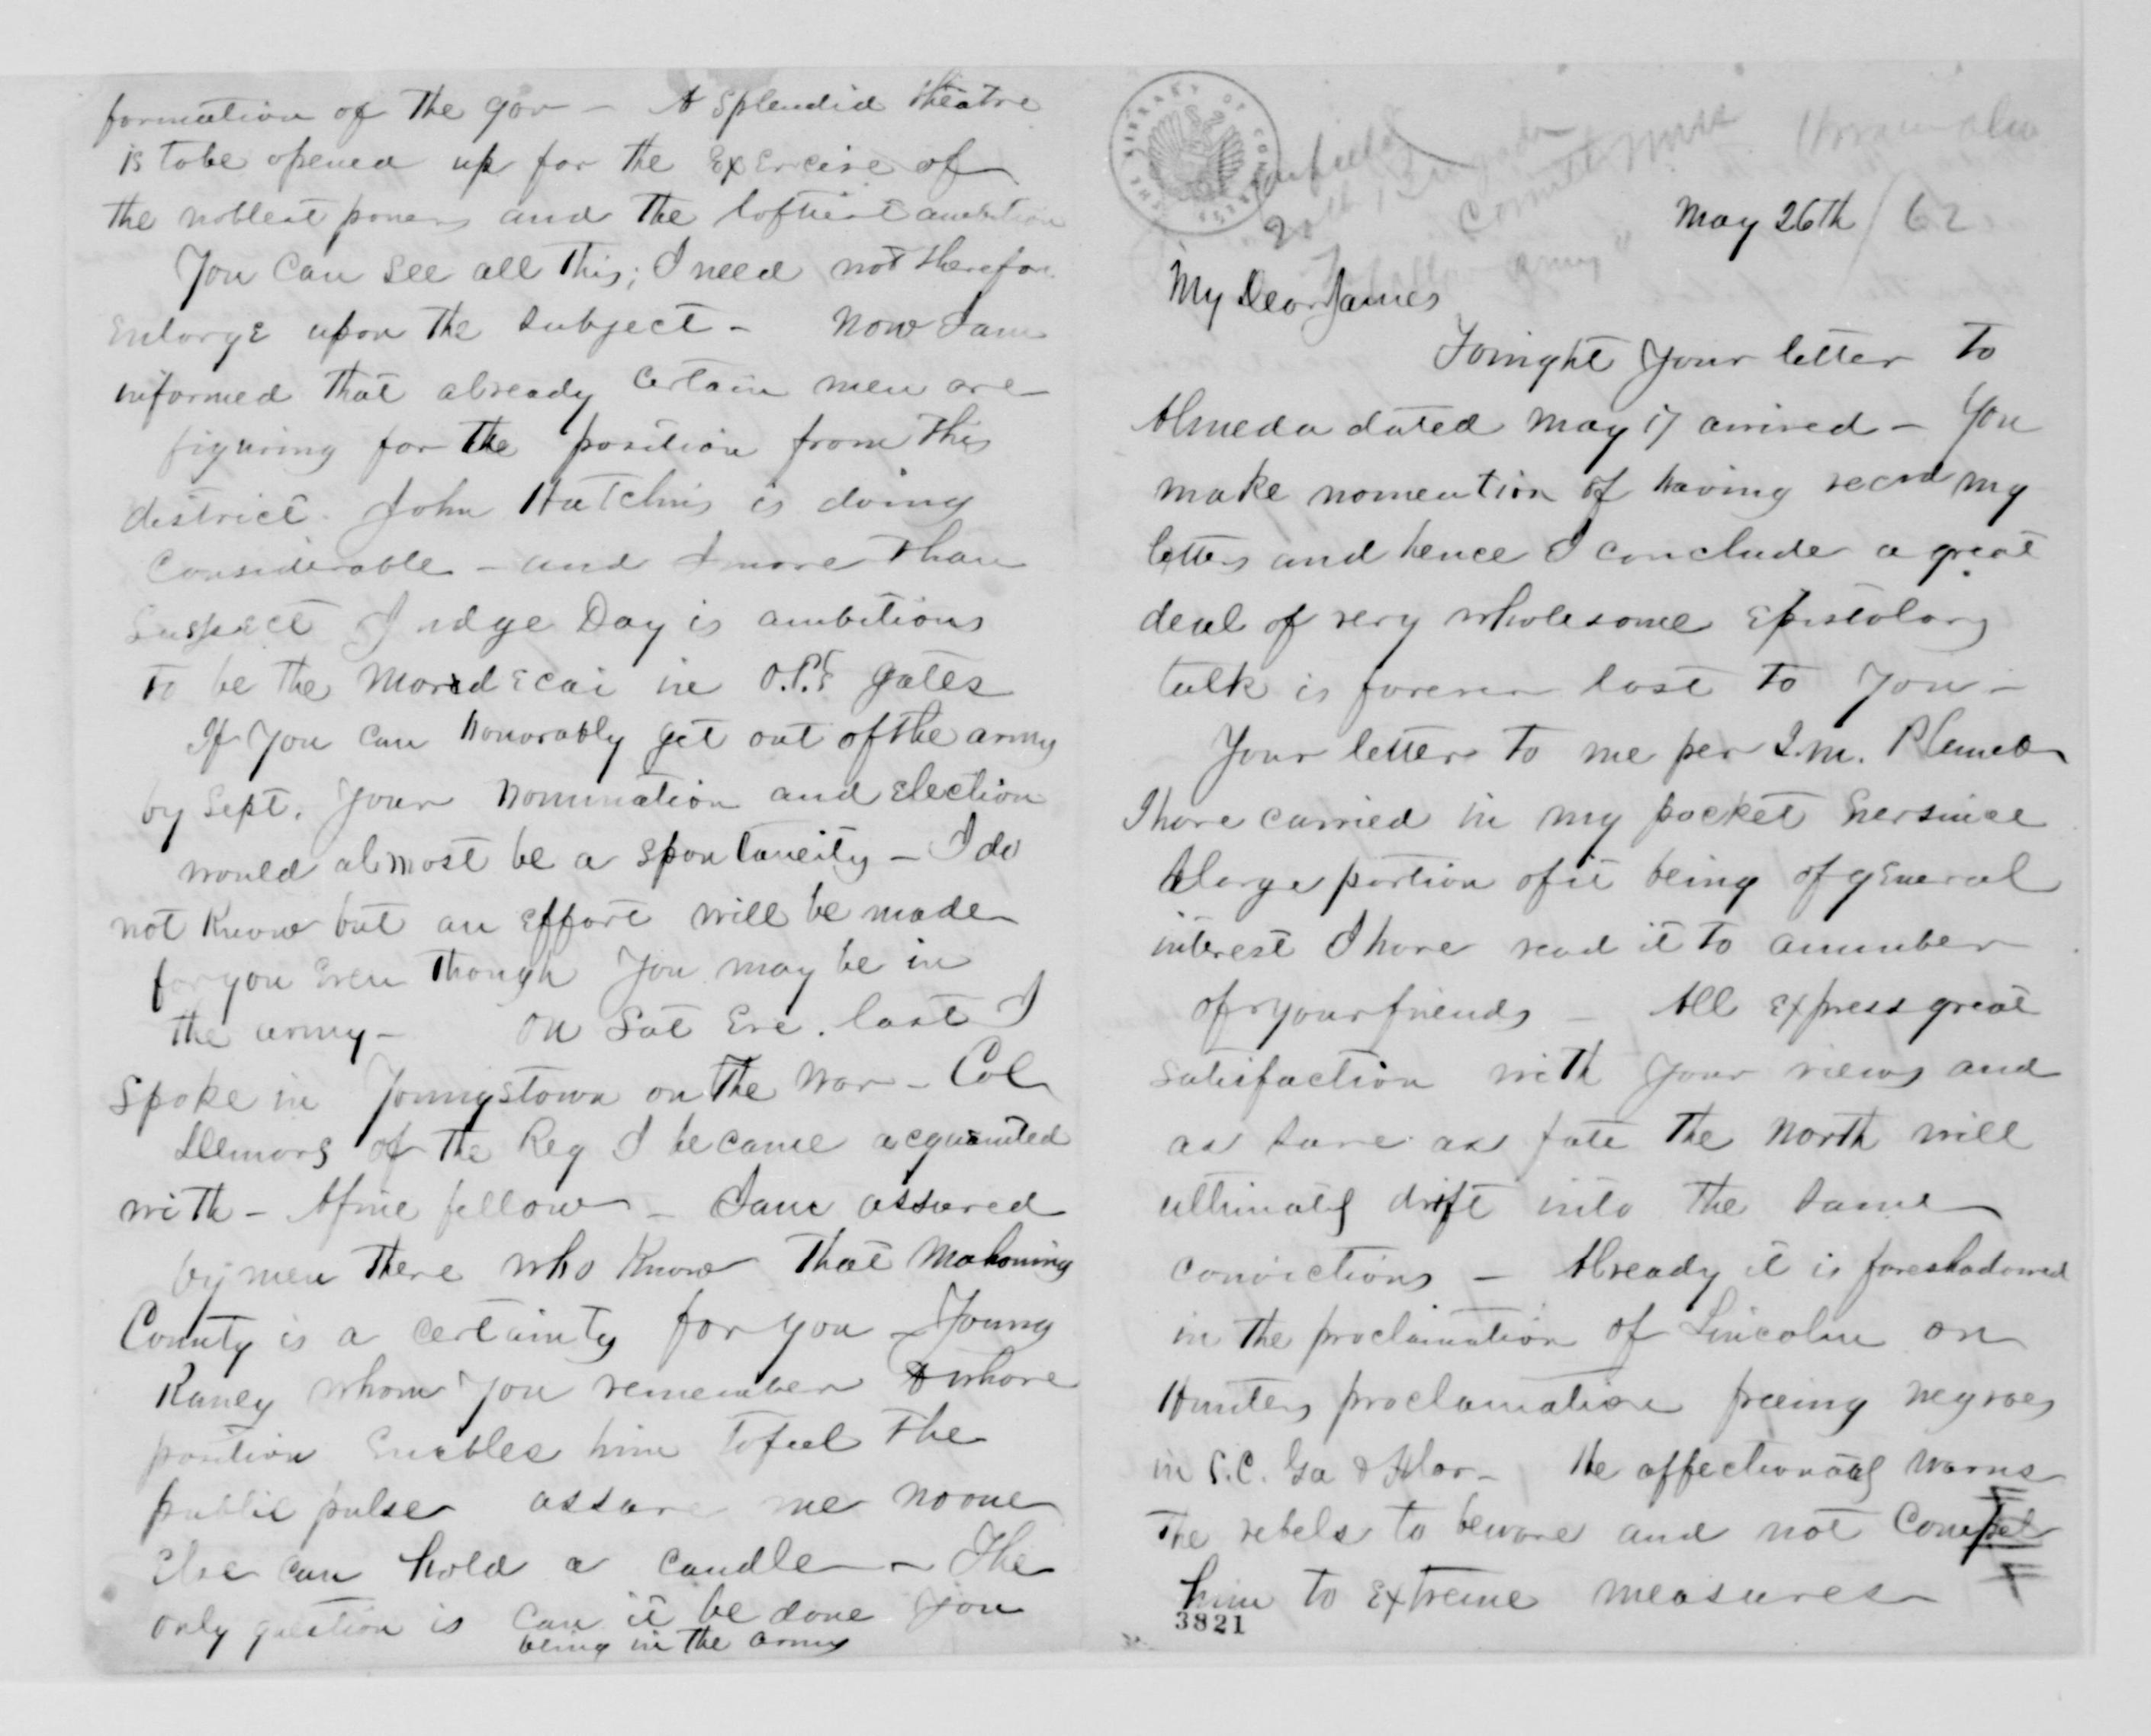 formation of the gov - A splendid theatre
is to be opened up for the Exercise of
the noblest powers and the loftiest ambition
You can see all this; I need not therefore
Enlarge upon the subject - Now I am
informed that already certain men are
figuring for the position from this
district. John Hutchins is doing
Considerable - and I more than
suspect Judge Day is ambitious
to be the Mordecai in gates
If you can honorably get out of the army
by Sept. your nomination and Election
would almost be a spontaneity - I do
not know but an Effort will be made
for you Even though you may be in
the army - On Sat Eve. last I
Spoke in Youngstown on the War - Col
of the Reg I became acquainted
with - A fine fellow - I am assured
by men there who know that Mahoning
County is a certainty for you - Young
whom you remember & whose
position Enables him to feel the
public pulse assures me no one
Else can hold a candle - The
only question is can it be done you
being in the army
THE LIBRARY OF CONGRESS
May 26th / 62
My Dear James
Tonight your letter to
Almeda dated May 17 arrived - You
make no mention of having recvd my
letters and hence I conclude a great
deal of very wholesome Epistolary
talk is forever lost to you -
Your letter to me per
I have carried in my pocket Ever since
A large portion of it being of general
interest I have read it to a number
of your friends - All Express great
satisfaction with your views and
as sure as fate the North will
ultimately drift into the same
convictions - Already it is foreshadowed
in the proclamation of Lincoln on
Hunters proclamation freeing negroes
in S.C. Ga & Flor - He affectionately warns
the rebels to beware and not Compel
him to Extreme measures
3821